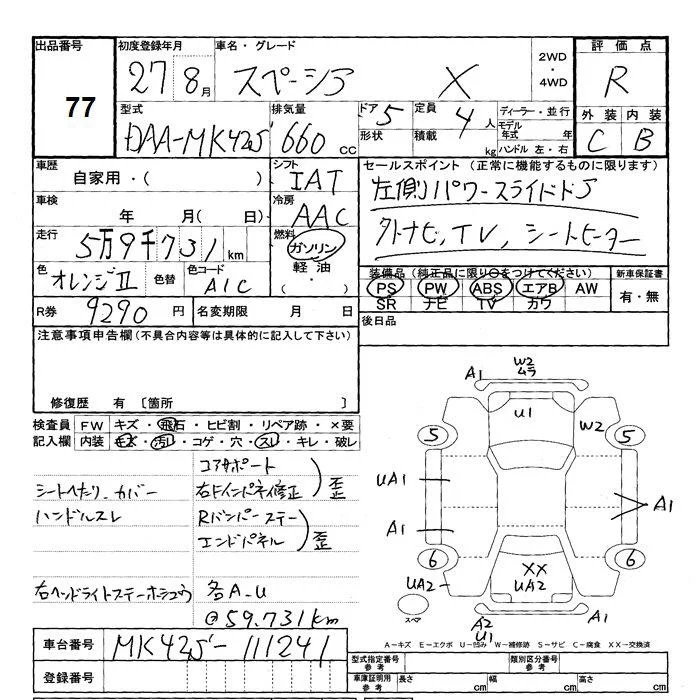 出品番号
77
初度登録年月
27 8月
車名・グレード
スペーシア X
2WD
・
4WD
評価点
R
外装 内装
C B
型式
DAA-MK42S
排気量
660 cc
ドア 5
形状
定員 4 人
積載 kg
ディーラー・並行
モデル年式 年
ハンドル 左・右
車歴
自家用・( )
車検
年 月(日)
走行
5万9千731km
色
オレンジⅡ
色替
色コード
A1C
シフト
IAT
冷房
AAC
燃料
ガソリン
軽油
・( )
セールスポイント (正常に機能するものに限ります)
左側パワースライドドア
外ナビ,TV,シートヒーター
装備品(純正品に限り○をつけてください)
PS PW ABS エアB AW
SR ナビ TV カワ
新車保証書
有・無
R券 9290円
名変期限 月 日
後日品
注意事項申告欄(不具合内容等は具体的に記入して下さい)
修復歴 有 〔箇所 〕
検査員 FW キズ・飛石・ヒビ割・リペア跡・×要
記入欄 内装 キズ・汚れ・コゲ・穴・スレ・キレ・破レ
コアサポート
右Fインパネ修正
歪
シートへたり、カバー
ハンドルスレ
Rバンパーステー
エンドパネル
歪
右ヘッドライトステーホシュウ
各A-U
@59.731km
W2
ムラ
A1
U1
W2
5
5
UA1
A1
A1
6
6
XX
UA2
UA2
スペア
A2
U1
A1
A-キズ E-エクボ U-凹み W-補修跡 S-サビ C-腐食 XX-交換済
車台番号
MK42S-111241
登録番号
型式指定番号
参考
類別区分番号
参考
車庫証明用
参考
長さ cm 幅 cm 高さ cm